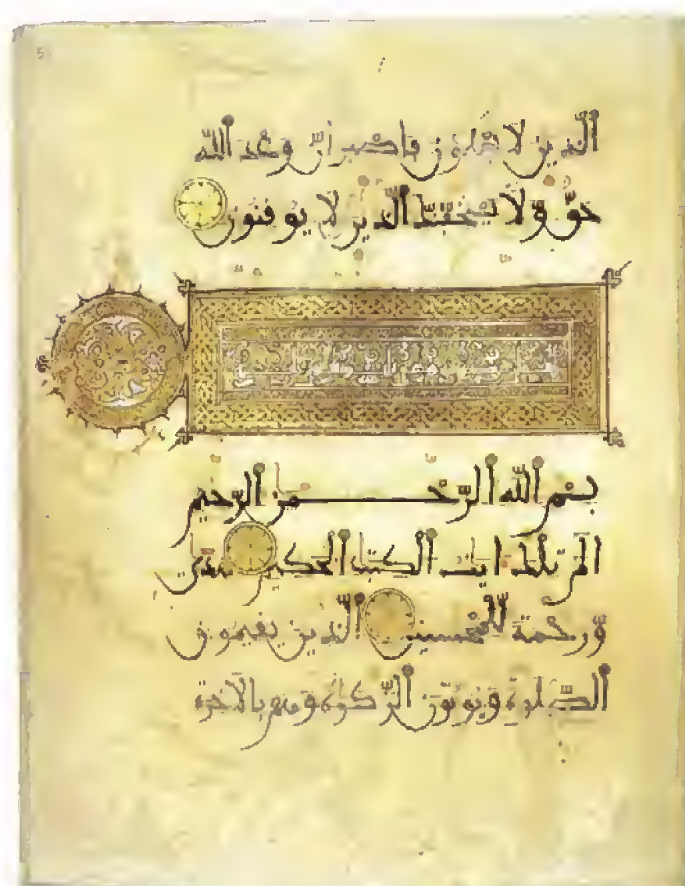 الَّذِينَ لَا يَعْلَمُونَ فَاصْبِرْ انَّ وَعْدَ اللَّهِ
حَقٌّ وَّلَا يَسْتَخِفَّنَّكَ الَّذِينَ لَا يُوقِنُونَ
بِسْمِ اللَّهِ الرَّحْمَنِ الرَّحِيمِ
الٓمّٓ تِلْكَ ايَتُ الْكِتَبِ الْحَكِيمِ هُدًى
وَّرَحْمَةً لِّلْمُحْسِنِينَ الَّذِينَ يُقِيمُونَ
الصَّلَوةَ وَيُوتُونَ الزَّكَوةَ وَهُم بِالْاخِرَةِ